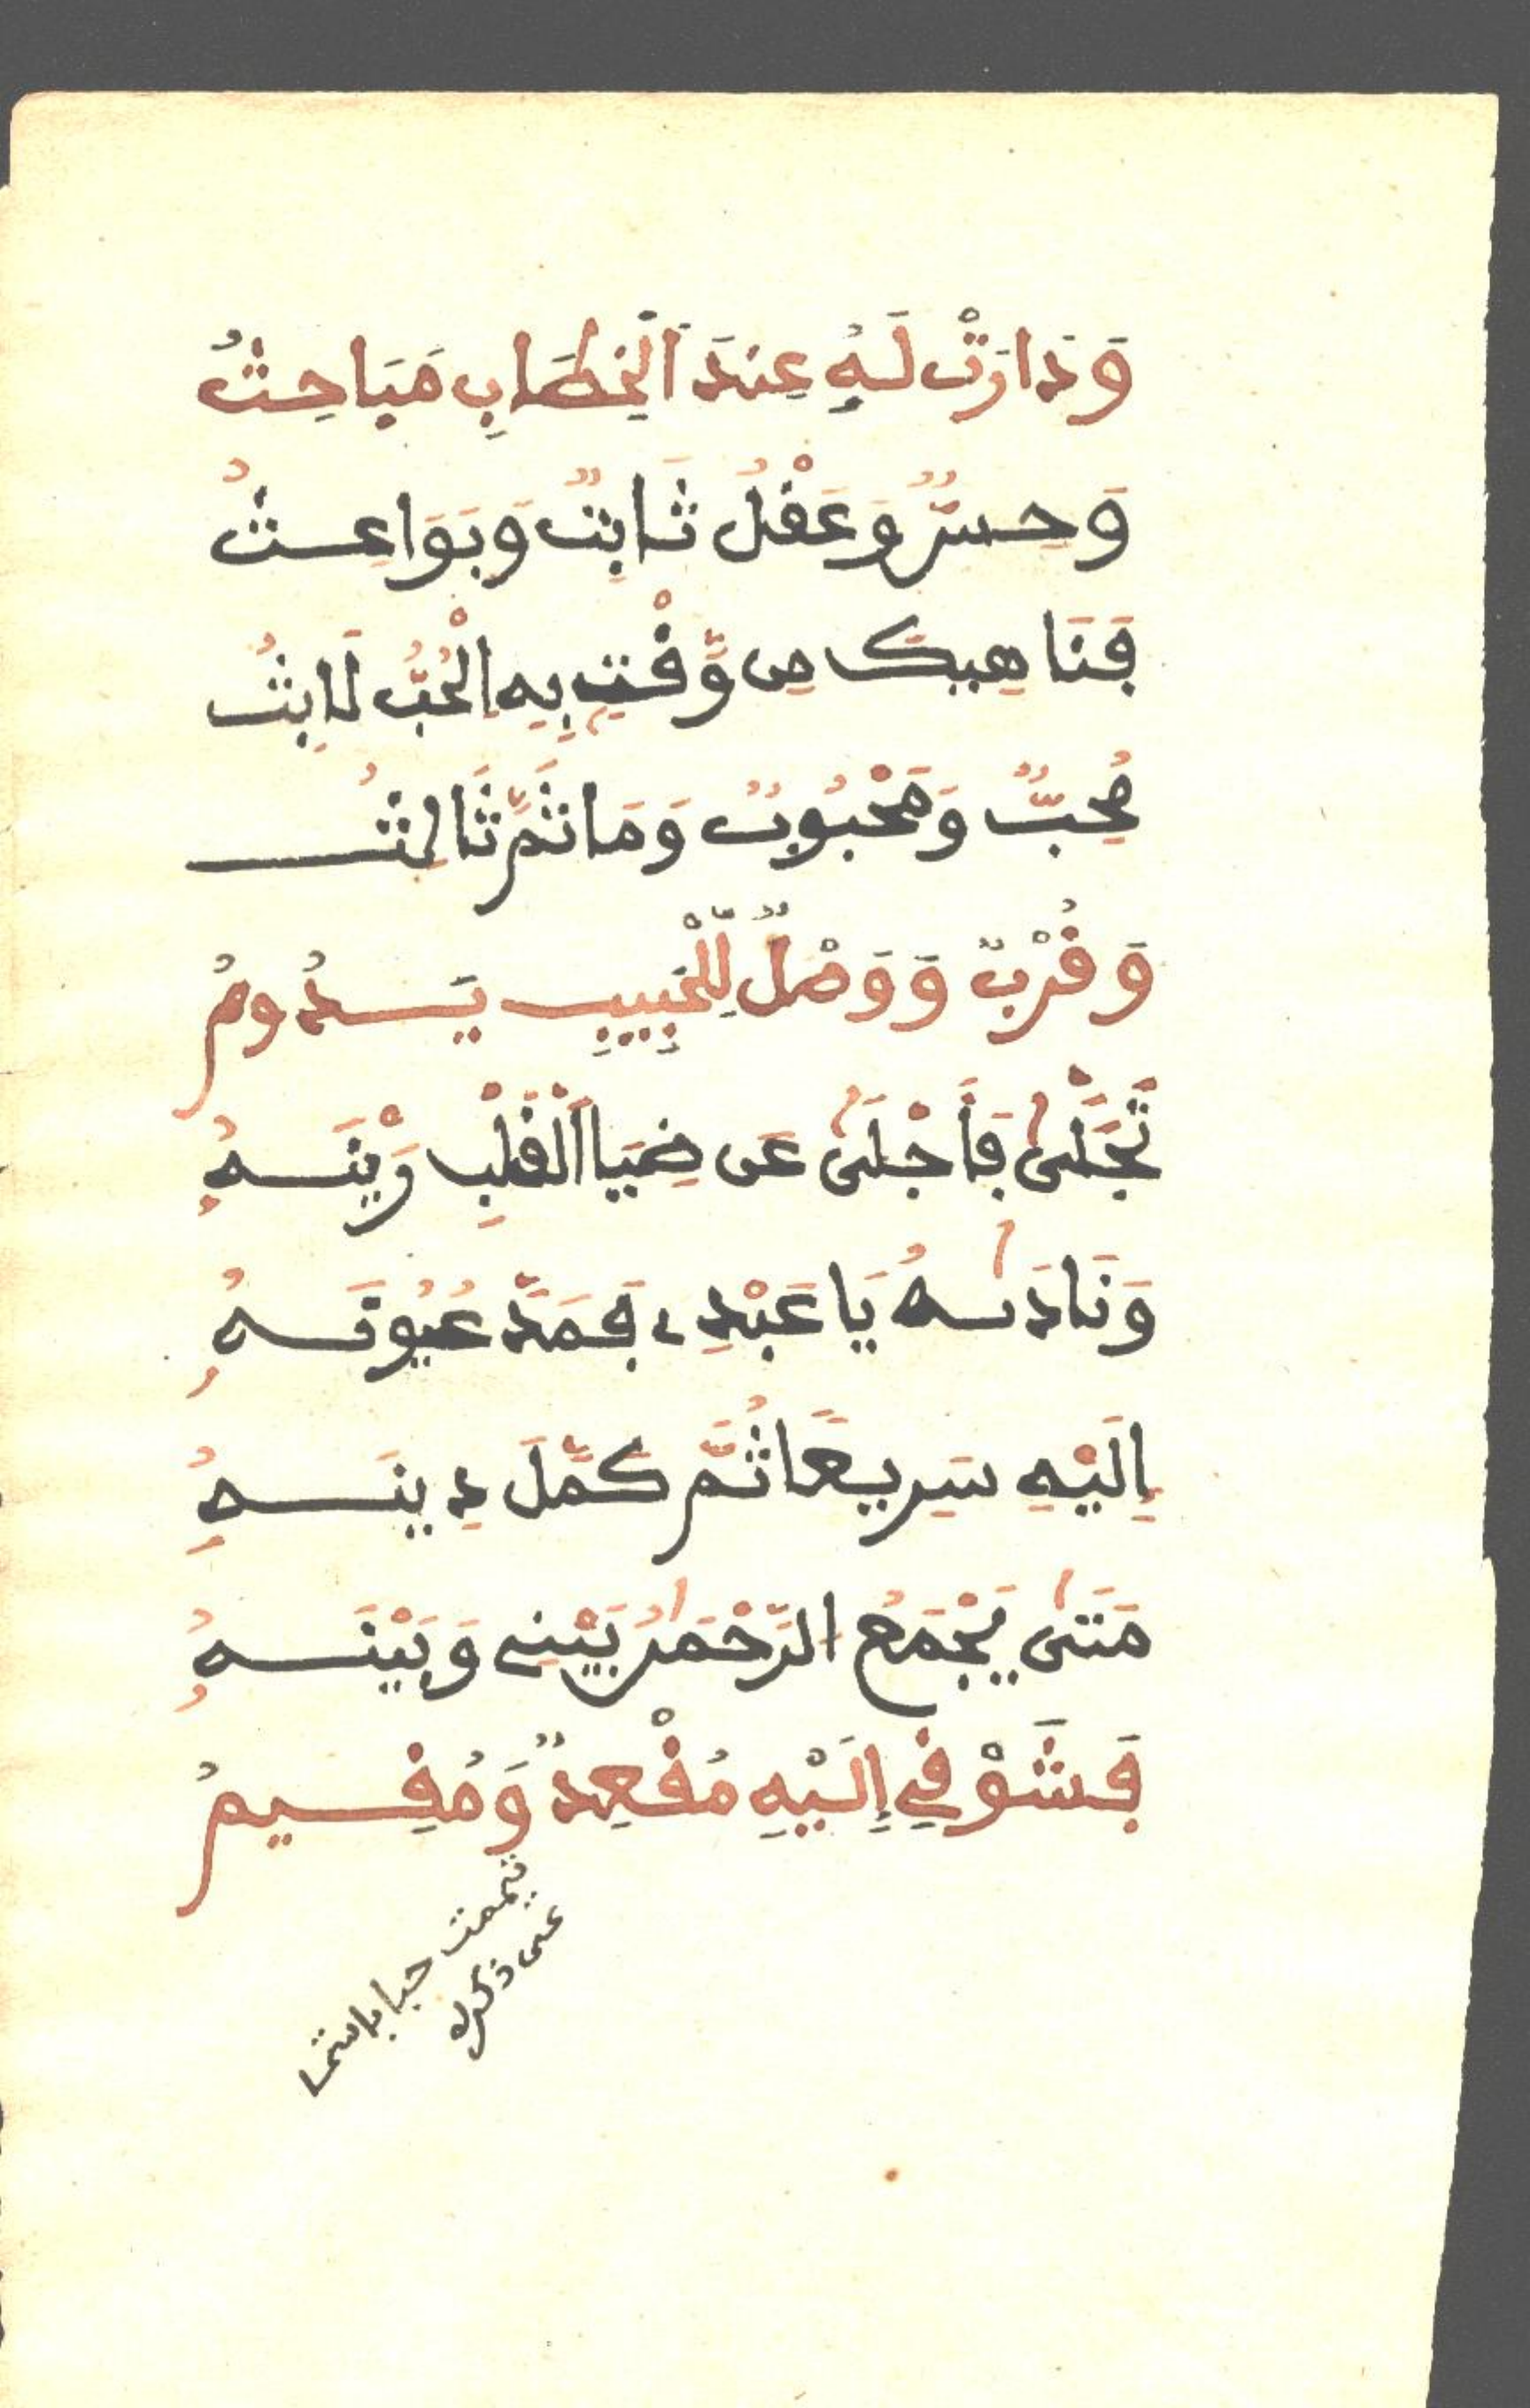 وَدَارَتْ لَهُ عِندَ اَلْخِطَابِ مَبَاحِثُ
وَحِسٌّ وَعَقْلٌ ثَابِتٌ وَبَوَاعِثُ
فَنَاهِيكَ مِن وَّقْتٍ بِهِ الْحُبُّ لَابِثُ
مُحِبٌّ وَمَحْبُوبٌ وَمَا ثَمَّ ثَالِثُ
وَقُرْبٌ وَوَصْلٌ لِّلْحَبِيبِ يَدُومُ
تَجَلَّىٰ فَأَجْلَىٰ عَن ضِيَا اَلْقَلْبِ رَيْنَهُ
وَنَادَىٰهُ يَا عَبْدِى فَمَدَّ عُيُونَهُ
إِلَيْهِ سَرِيعًا ثُمَّ كَمَّلَ دِينَهُ
مَتَىٰ يَجْمَعُ الرَّحْمَٰنُ بَيْنِى وَبَيْنَهُ
فَشَوْقِي إِلَيْهِ مُقْعِدٌ وَمُقِيمُ
تيممت حبا
عن ذكره